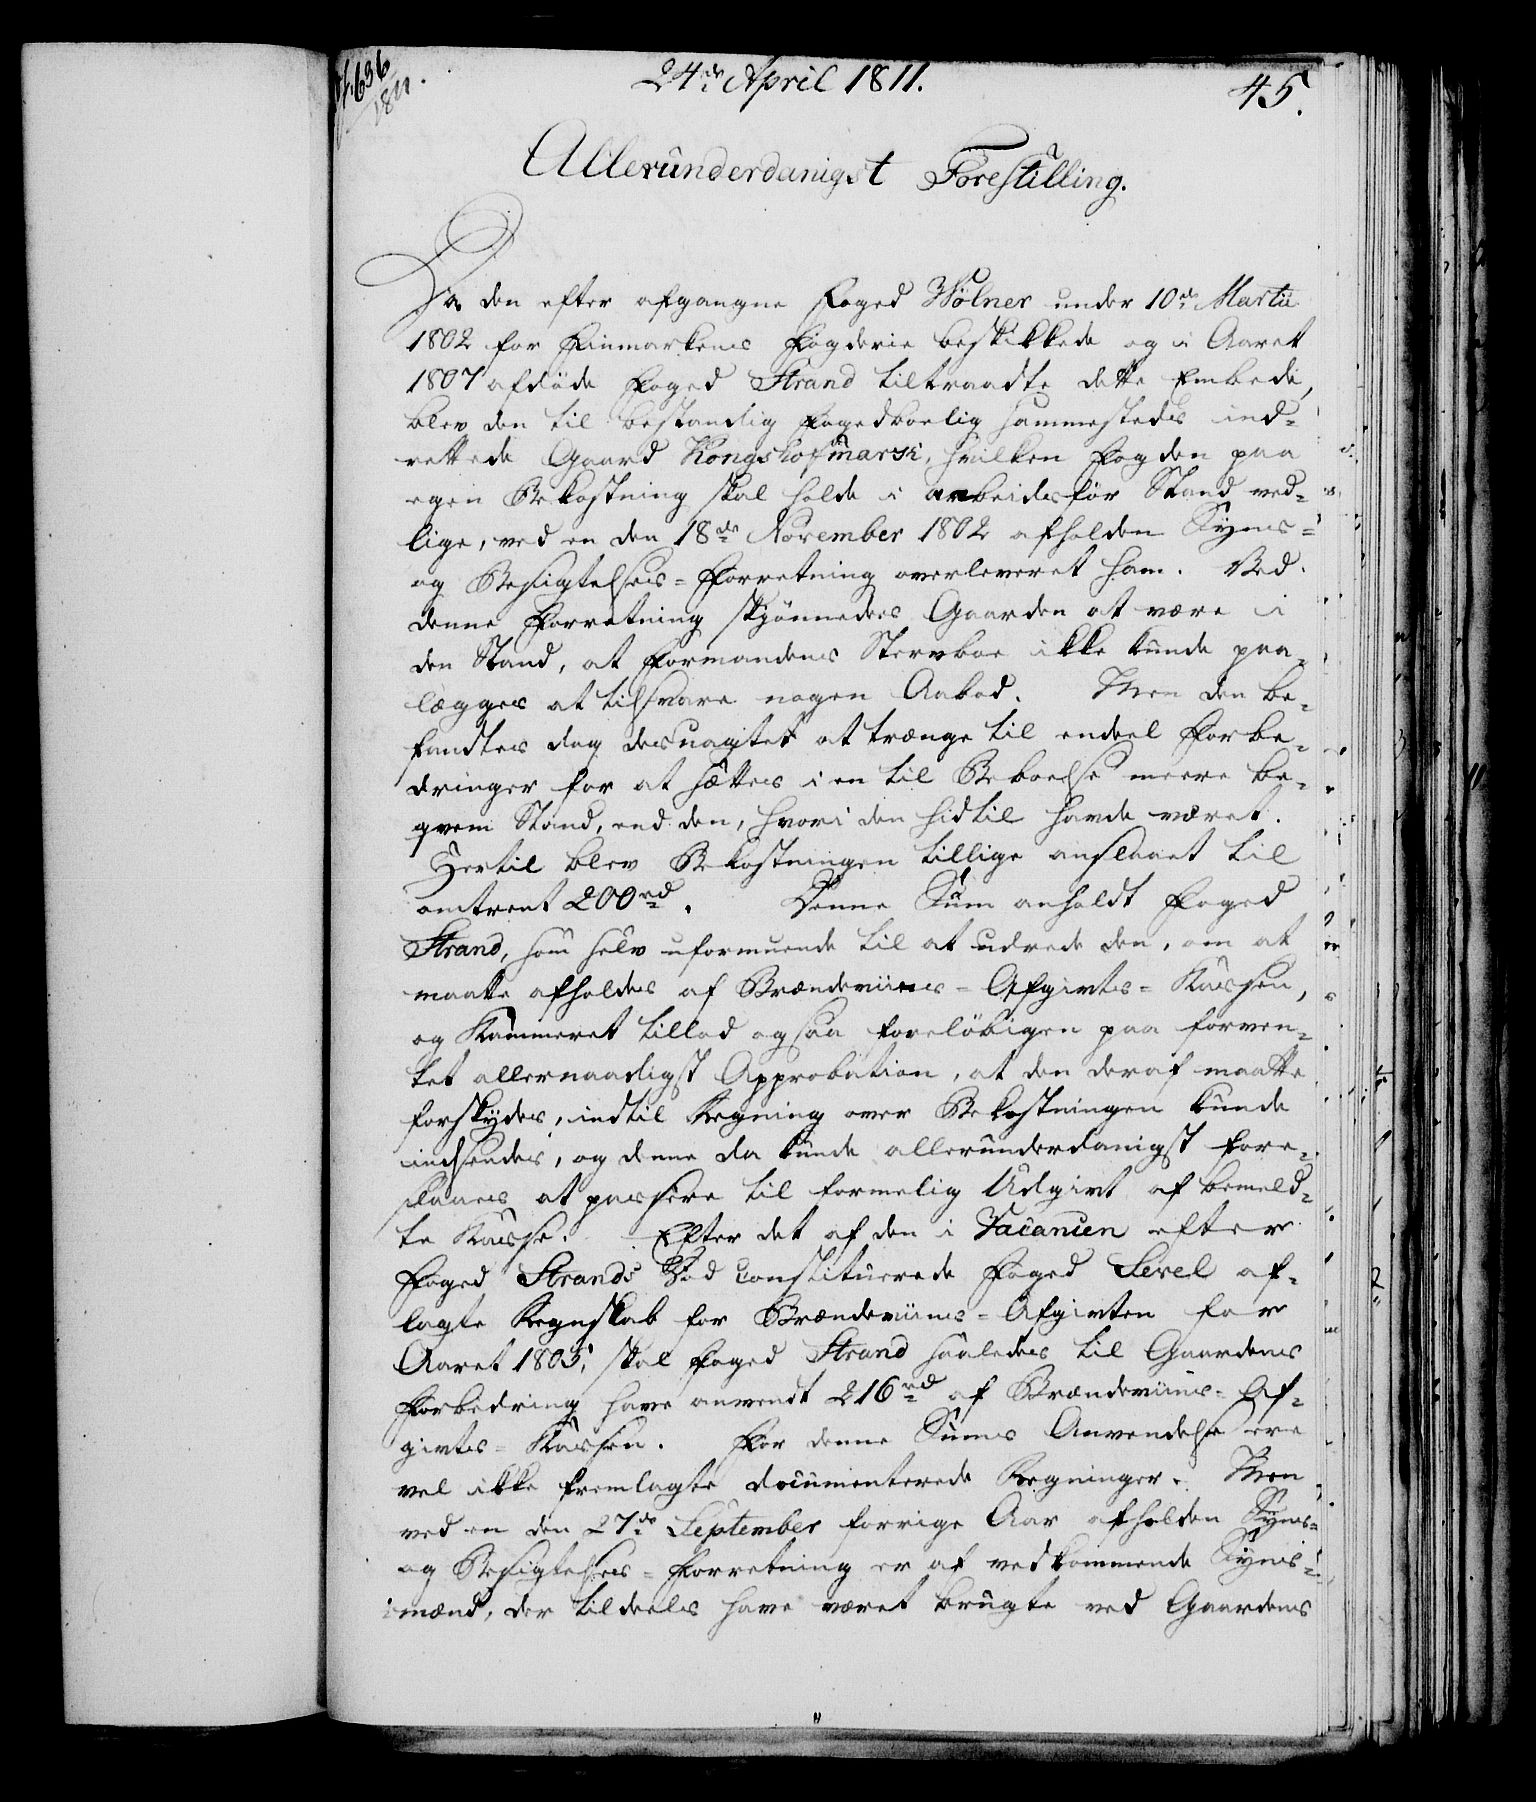 636
1811.
24de April 1811.
45.
Allerunderdanigst Forestilling.
Da den efter afgangne Foged Wölner under 10de Martii
1802 for Finmarkens Fogderie beskikkede og i Aaret
1807 afdöde Foged Strand tiltraadte dette Embede,
blev den til bestandig Fogedboelig sammestedes ind-
rettede Gaard Kongshofmark, hvilken Fogden paa
egen Bekostning skal holde i arbeidsfør Stand ved-
lige, ved en den 18de November 1802 afholden Syns-
og Besigtelses-Forretning overleveret ham. Ved
denne Forretning skjönnedes Gaarden at være i
den Stand, at Formandens Sterboe ikke kunde paa-
lægges at tilsvare nogen Aabod. Men den be-
fandtes dog desuagtet at trænge til endeel Forbe-
dringer for at sættes i en til Beboelse meere be-
qvem Stand, end den, hvori den hidtil havde været.
Hertil blev Bekostningen tillige anslaaet til
omtrent 200rd. Denne Sum anholdt Foged
Strand, som selv uformuende til at udrede den, om at
maatte afholdes af Brændeviins-Afgivts-Kassen,
og Kammeret tillod ogsaa foreløbigen paa forven-
tet allernaadigst Approbation, at den deraf maatte
forskydes, indtil Regning over Bekostningen kunde
indsendes, og denne da kunde allerunderdanigst fore-
slaaes at passere til formelig Udgivt af bemeld-
te Kasse. Efter det af den i Vacancen efter
Foged Strands Död constituerede Foged Level af-
lagte Regnskab for Brændeviins-Afgivten for
Aaret 1805, skal Foged Strand saaledes til Gaardens
Forbedring have anvendt 216rd af Brændeviins-Af-
givts-Kassen. For denne Sums Anvendelse ere
vel ikke fremlagte documenterede Regninger. Men
ved en den 27de September forrige Aar afholden Syns-
og Besigtelses-Forretning er af vedkommende Syns-
mænd, der tildeels have været brugte ved Gaardens